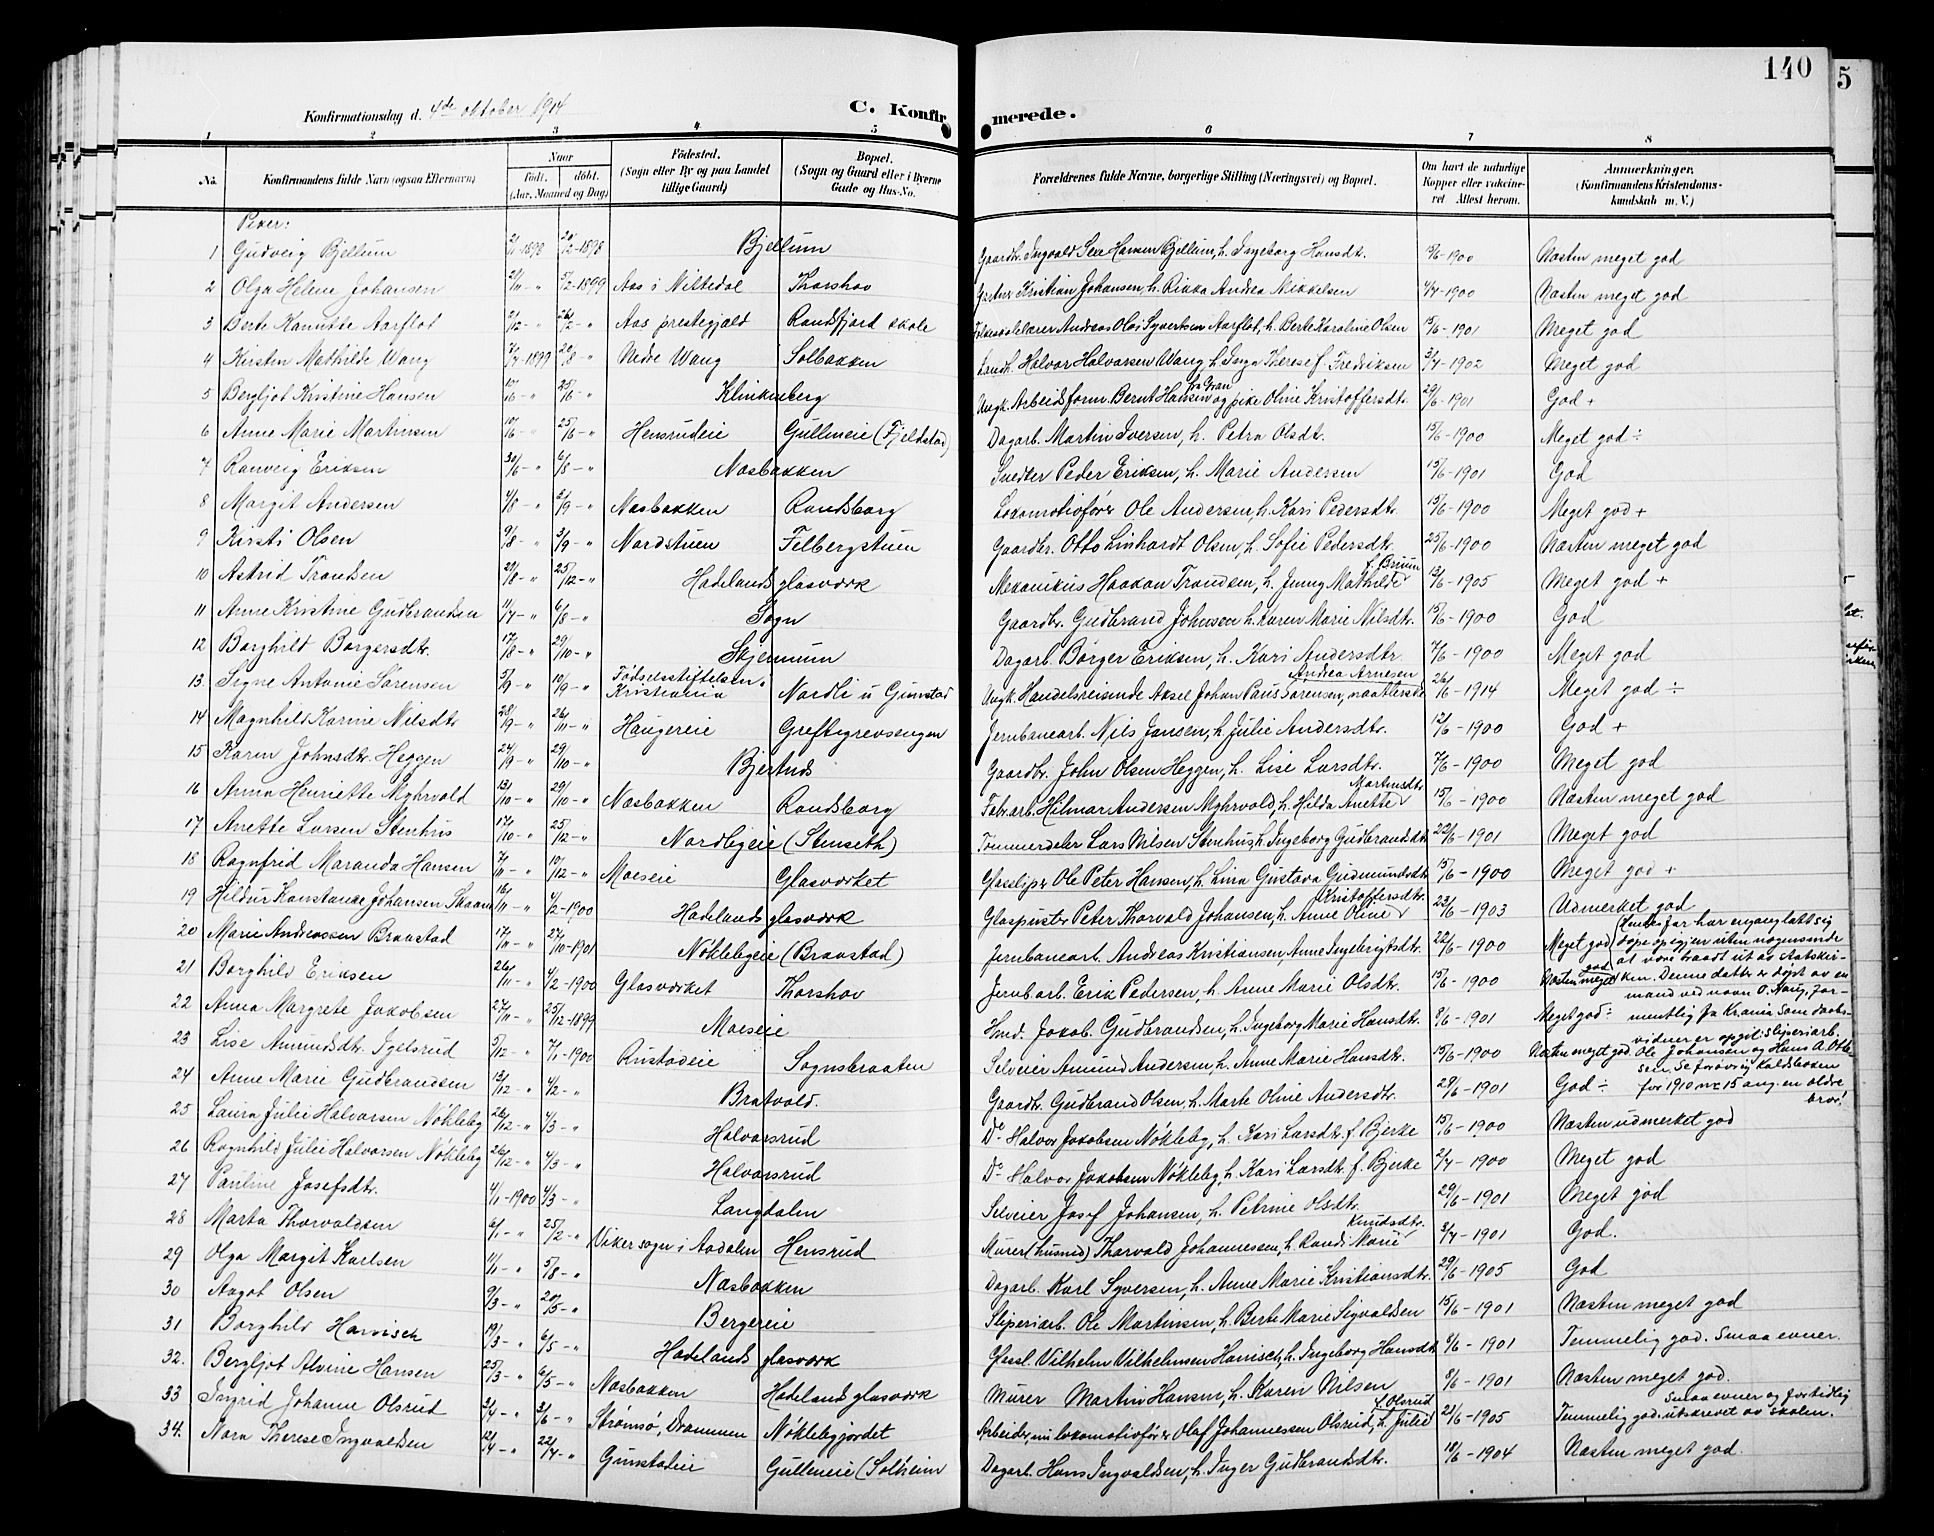 140
5
Konfirmationsdag d. 4de oktober 1914
C. Konfirmerede.
1 2 3 4 5 6 7 8
No. Konfirmandens fulde Navn (ogsaa Efternavn) Naar født. døbt. (Aar, Maaned og Dag) Fødested. (Sogn eller By og paa Landet tillige Gaard) Bopæl. (Sogn og Gaard eller i Byerne Gade og Hus-No. Forældrenes fulde Navne, borgerlige Stilling (Næringsvei) og Bopæl. Om havt de naturlige Kopper eller vakcineret Attest herom. Anmærkninger. (Konfirmandens Kristendomskundskab m. V.)
Piker:
1 Gudveig Bjellum 2/1-1898 20/2-1898 Bjellum Gaardbr. Ingvald Hansen Bjellum, h. Ingeborg Hansdtr. /6-1900 Næsten meget god
2 Olga Helene Johansen 21/11-" 5/2-1899 Aas i Nittedal Thorshov Gartner Kristian Johansen, h. Rikka Andrea Mikkelsen 4/7-1900 Næsten meget god
3 Berte Kanutte Aarflot 2/12-" 26/2-" Aas prestegjæld Randsfjord skole Andreas Olai Syvertsen Aarflot, h. Berte Karoline Olsen 15/6-1901 Meget god
4 Kirsten Mathilde Wang 7/4-1899 20/8-" Nedre Wang Solbakken Landh. Halvor Halvorsen Wang, h. Inga Therese f. Fredriksen 3/7-1902 Meget god
5 Bergljot Kristine Hansen 10/6-" 25/6-" Klinkenberg Ungk. Arbeidsform. Bernt Hansen fra Gran og pike Oline Kristoffersdtr. 29/6-1901 God +
6 Anne Marie Martinsen 10/6-" 25/6-" Hensrudeie Gullerneie (Fjeldstad) Dagarb. Martin Iversen, h. Petra Olsdtr. 15/6-1900 Meget god ÷
7 Ranveig Eriksen 30/6-" 6/8-" Næsbakken Snedker Peder Eriksen, h. Marie Andersen 15/6-1901 God
8 Margit Andersen 4/8-" 3/9-" Næsbakken Randsborg Lokomotivfører Ole Andersen, h. Kari Pedersdtr 15/6-1900 Meget god +
9 Kirsti Olsen 9/8-" 3/9-" Nordstuen Felbergstuen Gaardbr. Otto Linhardt Olsen, h. Sofie Pedersdtr. 25/6-1900 Næsten meget god
10 Astrid Trondsen 29/8-" 25/12-" Hadelands glasværk Mekanikus Haakon Trondsen, h. Jenny Mathilde f. Bruun 13/6-1905 Meget god +
11 Anne Kristine Gudbrandsen 11/7-" 6/8-" Sogn Gaardbr. Gudbrand Johnsen h. Karen Marie Nilsdtr. 15/6-1900 God
12 Borghild Børgersdtr. 17/8-" 29/10-" Skjernum Dagarb. Børger Eriksen, h. Kari Andersdtr. 7/6-1900 Meget god
13 Signe Antonie Sørensen 5/9-" 10/9-" Fødselsstiftelsen, Kristiania Nordli u Gunstad Ungk. Handelsreisende Aksel Johan Paus Sørensen, Andrea Arnesen 26/6-1914 Meget god ÷
14 Magnhild Karine Nilsdtr 28/9-" 26/11-" Haugereie Greftegrevsengen Jernbanearb. Nils Jansen, h Julie Andersdtr. 12/6-1900 God +
15 Karen Johnsdtr. Heggen 24/9-" 29/10-" Bjertnes Gaardbr. John Olsen Heggen, h. Lise Larsdtr. 7/6-1900 Meget god
16 Anna Henriette Myhrvold 13/10-" 29/10-" Næsbakken Randsborg Fabr.arb. Hilmar Andersen Myhrvold, h. Hilda Anette Martinsdtr 15/6-1900 Næsten meget god
17 Anette Larsen Stenhus 17/10-" 25/12-" Nordbyeie (Stenseth) Tømmerdeler Lars Nilsen Stenhus, h Ingeborg Gudbrandsdtr 22/6-1901 Meget god
18 Ragnfrid Maranda Hansen 7/11-" 10/12-" Moeseie Glasværket Glassliper Ole Peter Hansen, h. Lina Gustava Gudmundsdtr 15/6-1900 Meget god +
19 Hildur Konstanse Johansen Skaane 16/11-" 4/2-1900 Hadelands glasværk Glaspuster Peter Thorvald Johansen, h. Anne Oline Kristoffersdtr. 23/6-1903 Udmerket god
20 Marie Andreassen Braastad 17/11-" 27/10-1901 Nøklebyeie (Braastad) Jernbanearb. Andreas Kristiansen, Anne Ingebrigtsdtr 22/6-1900 Meget god
21 Borghild Eriksen 26/11-" 4/2-1900 Glasværket Thorshov Jernb.arb. Erik Pedersen, h. Anne Marie Olsdtr. 15/6-1900 Næsten meget god
Hendes far har engang latt sig
døpe op igjen uten nogensinde
at være traadt ut av Statskir-
ken. Denne datter er døpt av en
mand ved navn O. Haug, for-
mentlig fra Krania Som daabs-
vidner er opgit: Sliperiarb.
Ole Johansen og Hans A. Otte-
sen. Se forøvrig Kaldsboken
for 1910 nr 15 ang. en ældre
bror!
22 Anna Margrete Jakobsen 27/11-" 25/12-1899 Moeseie Smed. Jakob Gudbrandsen, h. Ingeborg Marie Hansdtr. 8/6-1901 Meget god ÷
23 Lise Amundsdtr. Igelsrud 5/12-" 7/1-1900 Rustadeie Sognsbraaten Selveier Amund Andersen, h. Anne Marie Hansdtr. 15/6-1900 Næsten meget god
24 Anne Marie Gudbrandsen 13/12-" 4/2-" Bratvold. Gaardbr. Gudbrand Olsen, h. Marte Oline Andersdtr. 29/6-1901 God ÷
25 Laura Julie Halvorsen Nøkleby 26/12-" 4/3-" Halvorsrud Do Halvor Jakobsen Nøkleby, h. Kari Larsdtr. f. Bjerke 15/6-1900 Næsten udmerket god
26 Ragnhild Julie Halvorsen Nøkleby 26/12-" 4/3-" Halvorsrud Do Halvor Jakobsen Nøkleby, h. Kari Larsdtr f. Bjerke 2/7-1900 Meget god
27 Pauline Josefsdtr. 4/1-1900 4/3-" Langdalen Selveier Josef Johansen, h. Petrine Olsdtr. 29/6-1901 Meget god
28 Marta Thorvaldsen 6/1-" 25/2-" Viker sogn i Aadalen Hensrud Murer (husmd) Thorvald Johannesen, h. Randi Marie Knudsdtr. 3/7-1901 God.
29 Olga Margit Karlsen 11/1-" 5/8-" Næsbakken Dagarb. Karl Syversen, h. Anne Marie Kristiansdtr. 29/6-1905 God
30 Aagot Olsen 9/3-" 20/5-" Bergereie Sliperiarb. Ole Martinsen, h. Berte Marie Sigvaldsen 15/6-1901 Næsten meget god
31 Borghild Harnisch 19/3-" 6/5-" Hadelands glasværk Glassl. Vilhelm Vilhelmsen Harnisch, h. Ingeborg Hansdtr 8/6-1901 Temmelig god. Smaa evner.
32. Bergljot Alvine Hansen 25/3-" 6/5-" Næsbakken Hadelands glasværk Murer Martin Hansen, h. Karen Nilsen 8/6-1901 Næsten meget god.
33 Ingrid Johanne Olsrud 2/4-" 3/6-" Strømsø, Drammen Nøklebyjordet Arbeider, nu lokomotivfører Olaf Johannessen Olsrud, h. Julie f. Olsrud 21/6-1905 Temmelig god. Smaa evner og fortidlig utskrevet av skolen.
34. Nora Therese Ingvaldsen 12/4-" 22/4-" Gunstadeie Gullerneie (Solheim Dagarb. Hans Ingvaldsen, h. Inger Gudbrandsdtr. 18/6-1904 Næsten meget god.